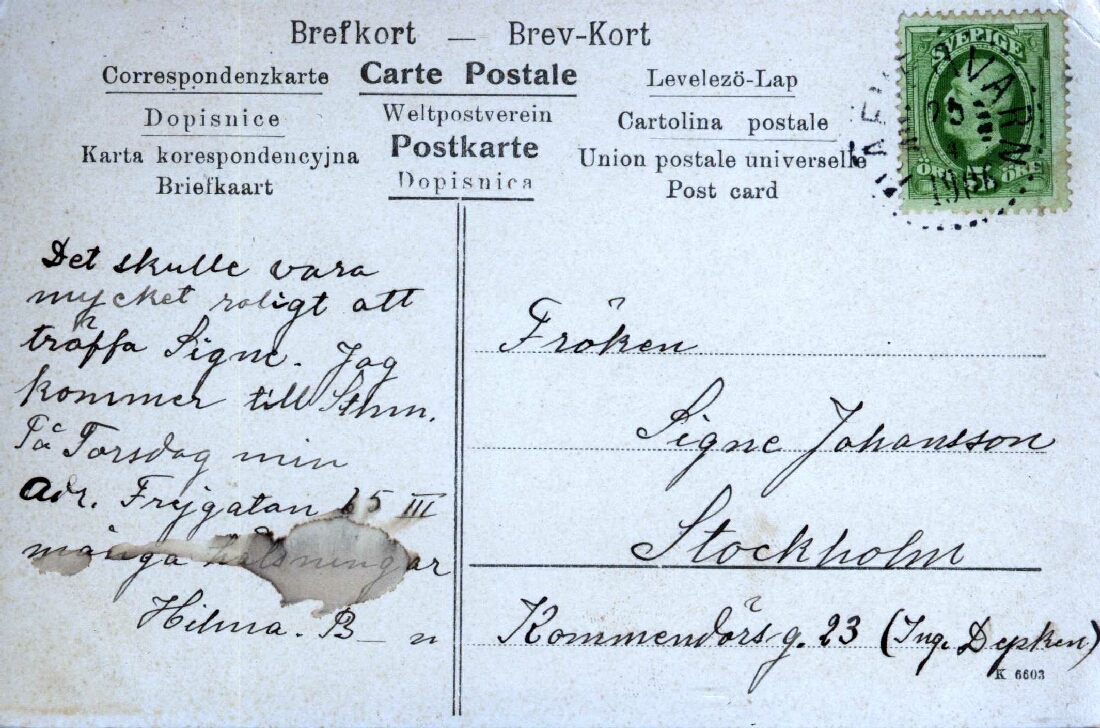 Brefkort — Brev-Kort
Correspondenzkarte
Carte Postale
Levelezö-Lap
Dopisnice
Weltpostverein
Cartolina postale
Karta korespondencyjna
Postkarte
Union postale universelle
Briefkaart
Dopisnica
Post card
SVERIGE
ÖRE ÖRE
KVARN
1906
Det skulle vara
mycket roligt att
träffa Signe. Jag
kommer till Sthm.
På Torsdag min
Adr. Frejgatan 65 III
många hälsningar
Hilma. B – n
Fröken
Signe Johansson
Stockholm
Kommendörsg. 23 (Ing. Depken)
K 6603